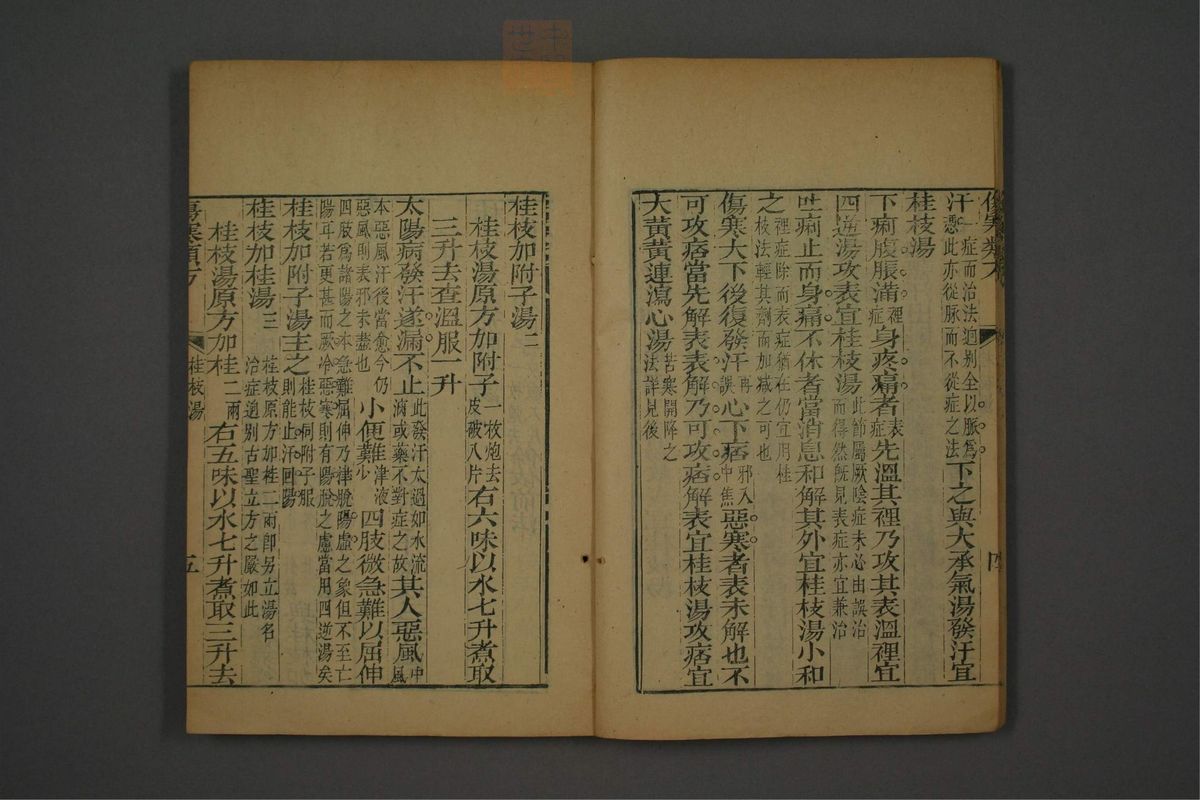 汗一症而治法迥别全以脈爲憑此亦從脈而不從症之法下之與大承氣湯發汗宜
桂枝湯
下痢腹脹滿裡症身疼痛者表症先溫其裡乃攻其表溫裡宜
四逆湯攻表宜桂枝湯此節屬厥陰症未必由誤治而得然旣見表症亦宜兼治
吐痢止而身痛不休者當消息和解其外宜桂枝湯小和
之裡症除而表症猶在仍宜用桂枝法輕其劑而加減之可也
傷寒大下後復發汗再誤心下痞邪入中焦惡寒者表未解也不
可攻痞當先解表表解乃可攻痞解表宜桂枝湯攻痞宜
大黃黃連瀉心湯苦寒開降之法詳見後
四
桂枝加附子湯二
桂枝湯原方加附子一枚炮去皮破八片右六味以水七升煮取
三升去查溫服一升
太陽病發汗遂漏不止此發汗太過如水流漓或藥不對症之故其人惡風中風
本惡風汗後當愈今仍惡風則表邪未盡也小便難津液少四肢微急難以屈伸
四肢爲諸陽之本急難屈伸乃津脫陽虛之象但不至亡陽耳若更甚而厥冷惡寒則有陽脫之慮當用四逆湯矣
桂枝加附子湯主之桂枝同附子服則能止汗囘陽
桂枝加桂湯三桂枝原方加桂二兩卽另立湯名治症迥别古聖立方之嚴如此
桂枝湯原方加桂二兩右五味以水七升煮取三升去
傷寒類方
桂枝湯
五